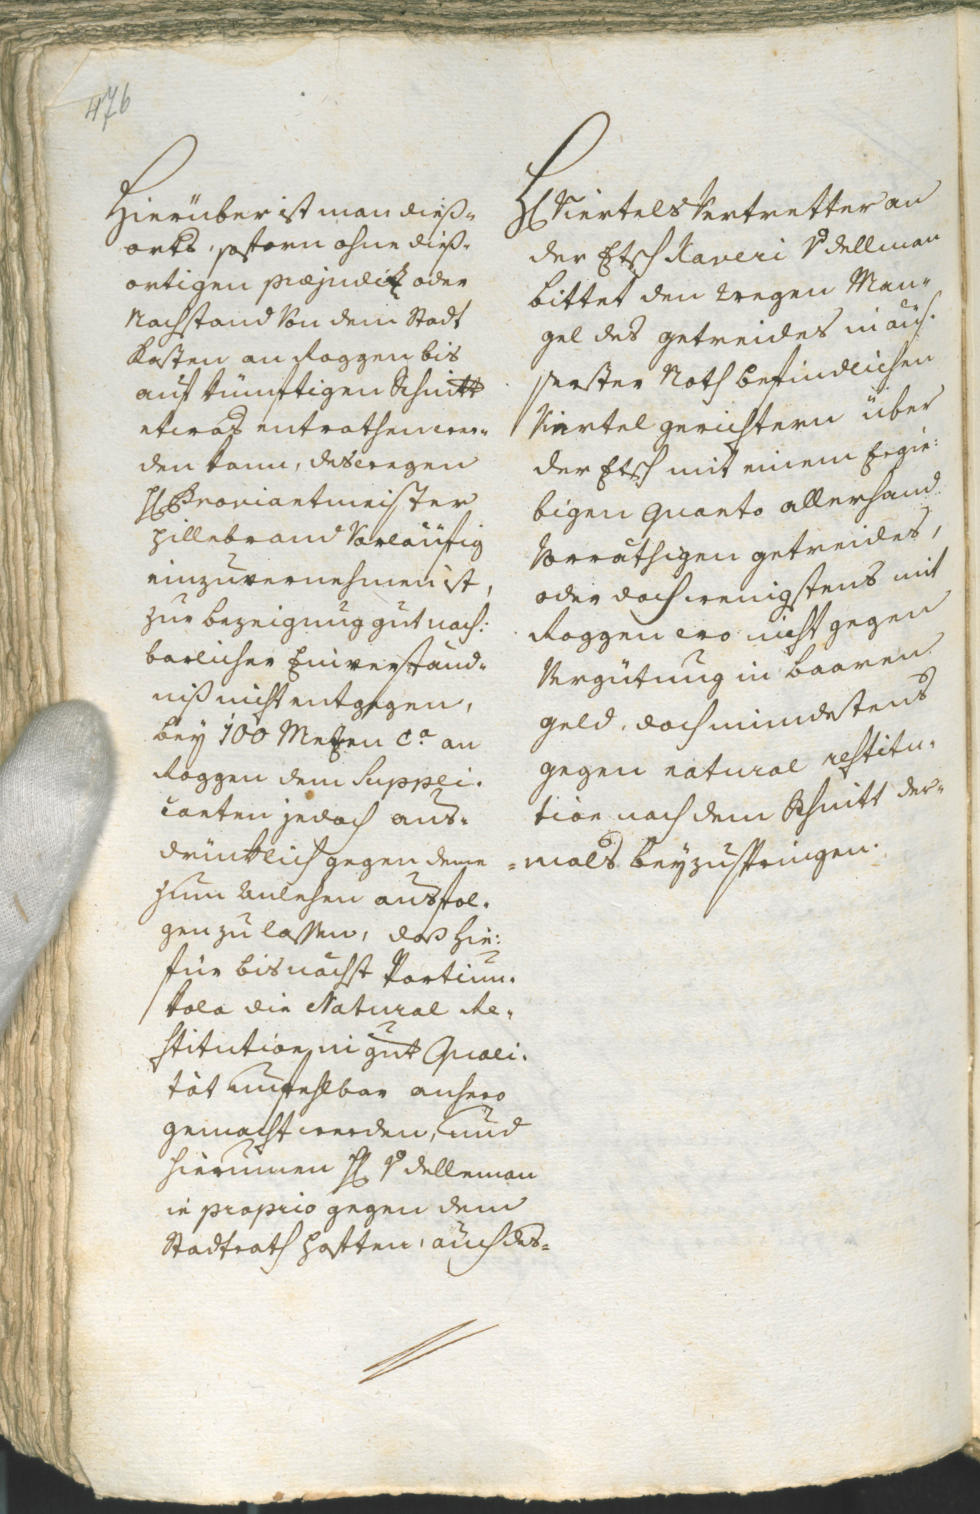 476
Hierüber ist man dieß-
orts, sofern ohne dieß-
ortigen præjudiz oder
Nachstand von dem Stadt
Kasten an Roggen bis
auf künftigen Schnitt
etwas entrathen wer-
den kann, deswegen
H Proviantmeister
Hillebrand vorläufig
einzuvernehmen ist,
zur bezeigung gut nach:
barlicher Einverständ-
niß nicht entgegen,
bey 100 Metzen ca an
Roggen dem Suppli-
canten jedoch aus-
drücklich gegen deme
zum Anlehen ausfol-
gen zu lassen, daß hie:
für bis nächst Portiun-
kola die Natural Re-
stitution in gut Quali-
tät unfehlbar anhero
gemacht werden, und
hierumen H Edelleman
in proprio gegen dem
Stadtrath haften, auch des-
H Viertels Vertretter an
der Etsch Xaveri Edellman
bittet den wegen Man-
gel des getreides in äus-
serster Noth befindlichen
Viertel gerichtern über
der Etsch mit einem Ergie:
bigen Quanto allerhand
Vorräthigen getreides,
oder doch wenigstens mit
Roggen wo nicht gegen
Vergütung in baaren
geld, doch mindestens
gegen natural restitu-
tion nach dem Schnitt der-
mals beyzuspringen.